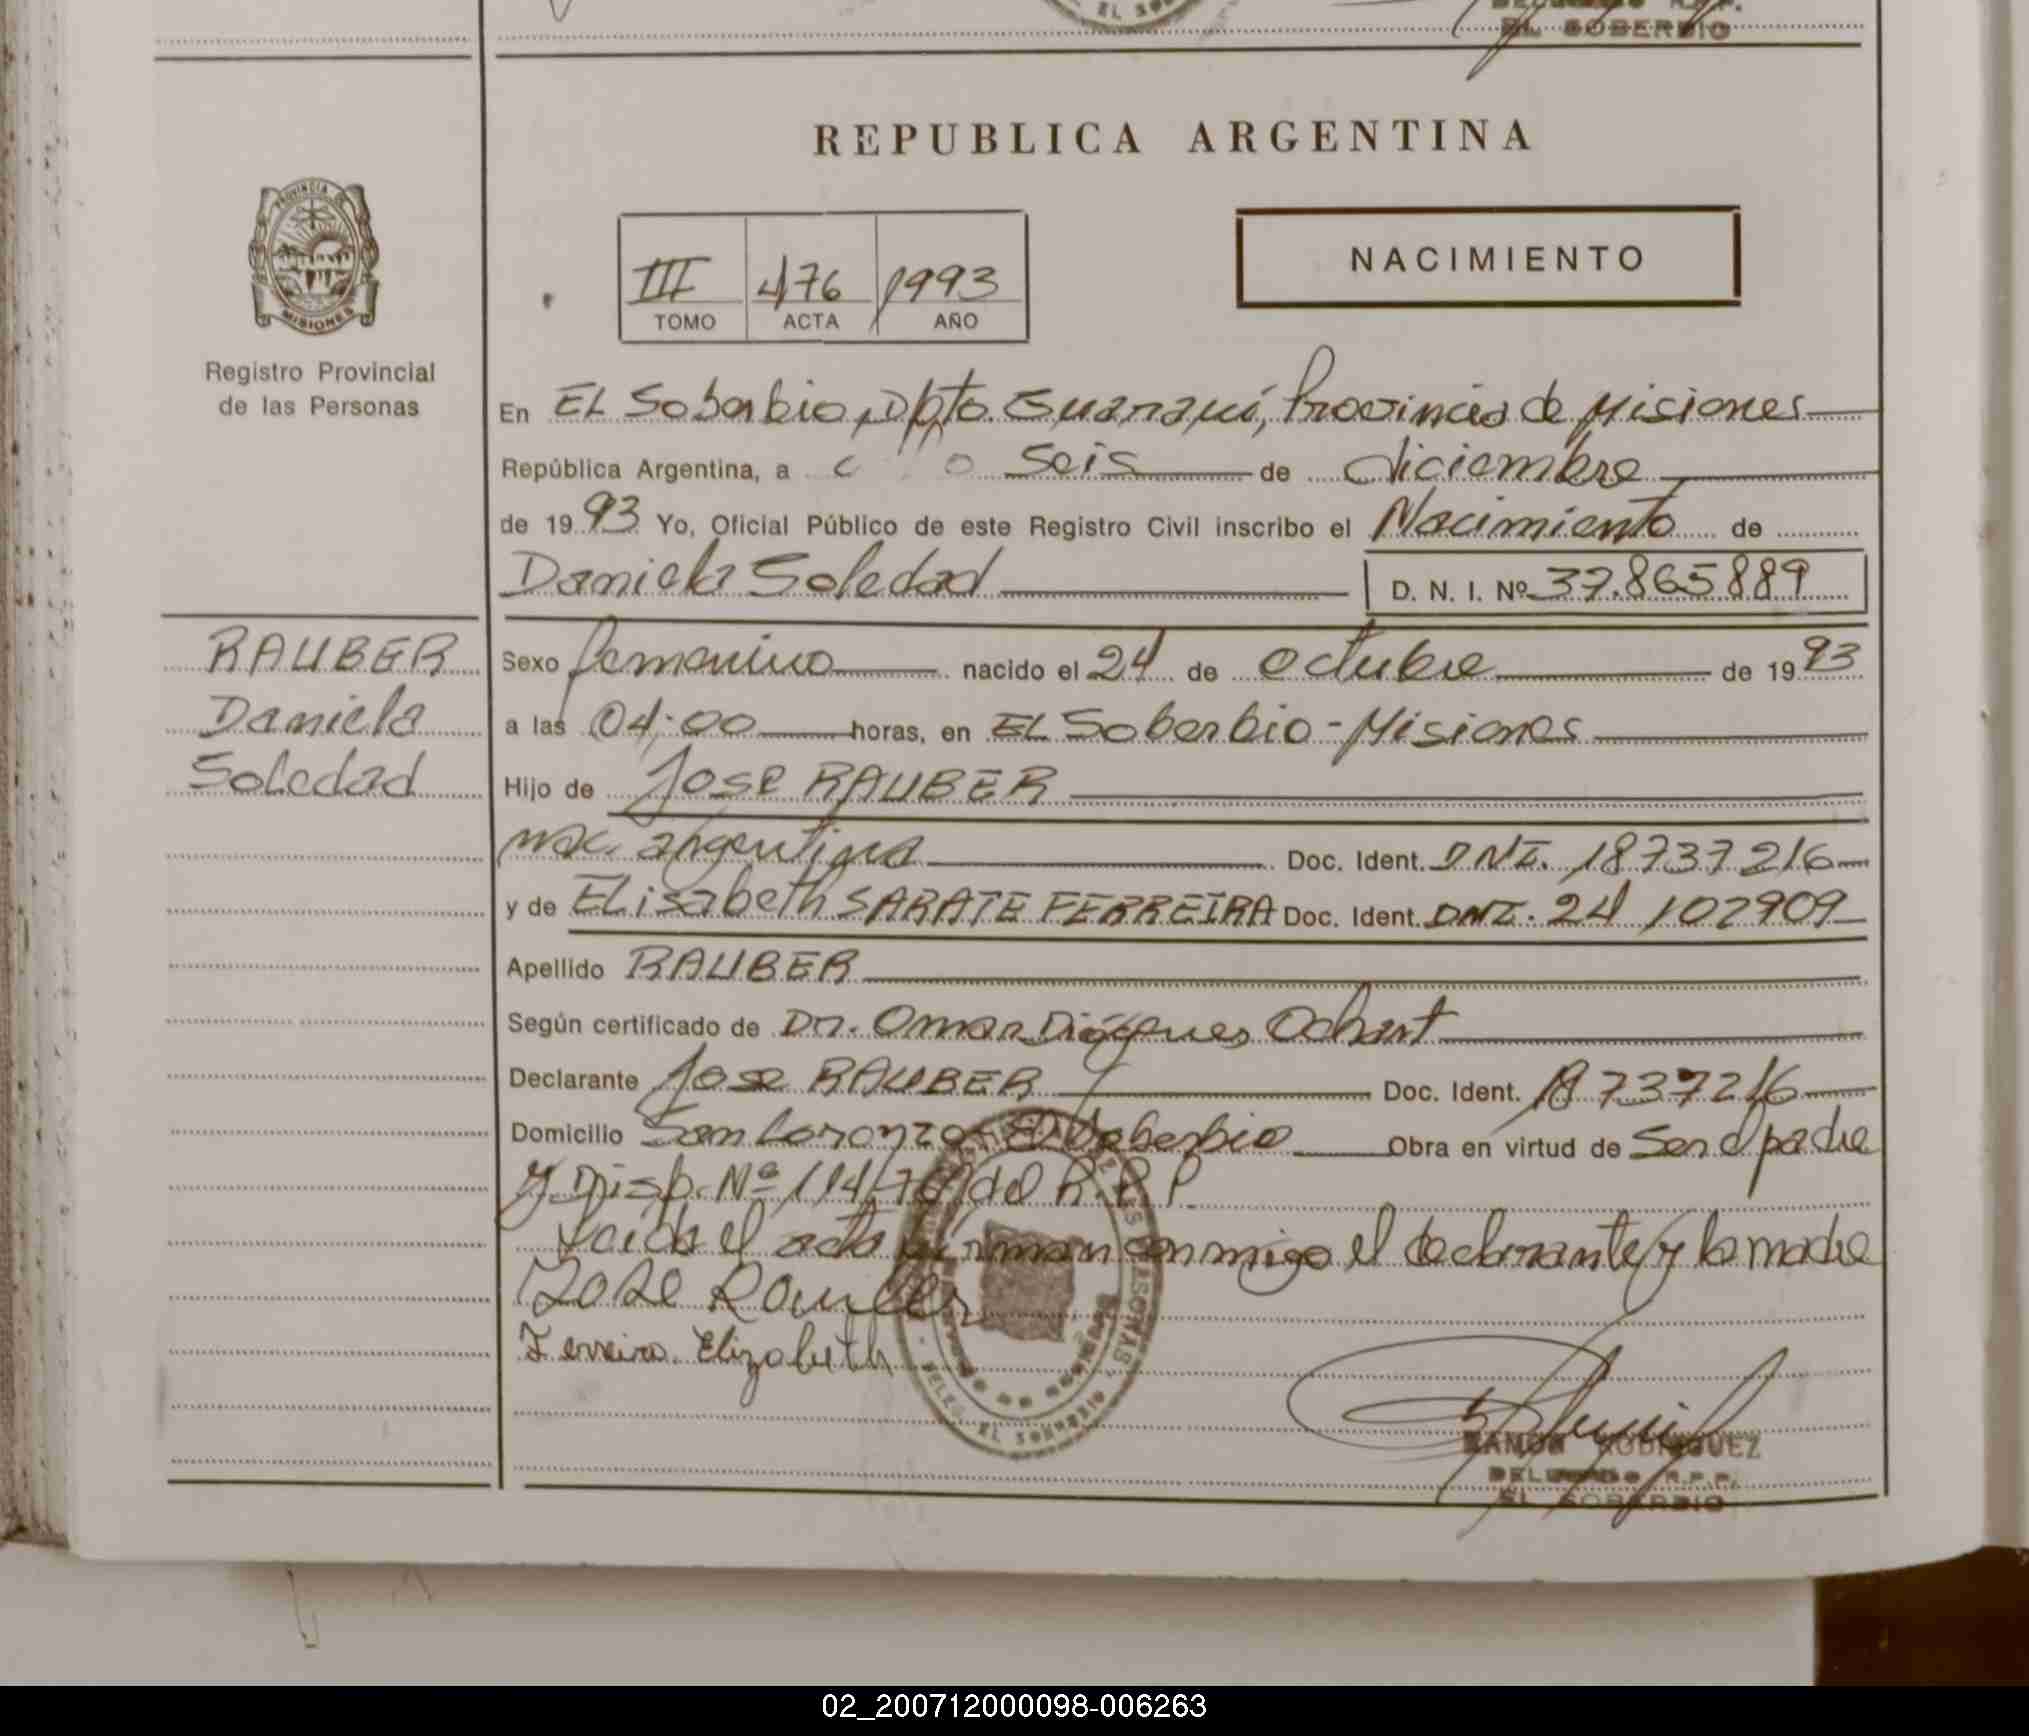 EL SOBERBIO
REPUBLICA ARGENTINA
PROVINCIA DE
MISIONES
Registro Provincial
de las Personas
III 476 1993
TOMO ACTA AÑO
NACIMIENTO
En EL Soberbio, Dpto. Guaraní, Provincia de Misiones
República Argentina, a Seis de diciembre
de 1993 Yo, Oficial Público de este Registro Civil inscribo el Nacimiento de
Daniela Soledad D. N. I. Nº 37.865889
RAUBER
Daniela
Soledad
Sexo femenino nacido el 24 de octubre de 1993
a las 04:00 horas, en EL Soberbio - Misiones
Hijo de Jose RAUBER
nac. argentina Doc. Ident. DNI. 18737216
y de ELisabeth SARATE FERREIRA Doc. Ident. DNI. 24 102909
Apellido RAUBER
Según certificado de Dr. Omar Diógenes Ochart
Declarante Jose RAUBER Doc. Ident. 18737216
Domicilio San Lorenzo - El Soberbio Obra en virtud de Ser el padre
y Disp. Nº 114/70 del R.P.P.
Leida el acta firman conmigo el declarante y la madre
Jose Rauber
Ferreira Elizabeth
DELEG. EL SOBERBIO
RAMON RODRIGUEZ
DELEGADO R.P.P.
EL SOBERBIO
02_200712000098-006263